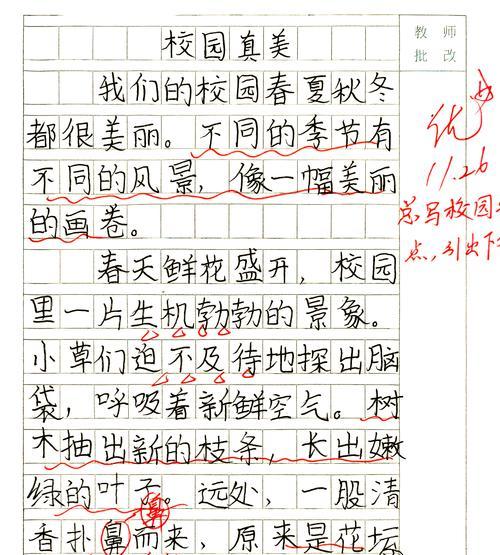 教 师
批 改
校园真美
我们的校园春夏秋冬
都很美丽。不同的季节有
不同的风景，像一幅美丽
的画卷。
春天鲜花盛开，校园
里一片生机勃勃的景象。
小草们迫不及待地探出脑
袋，呼吸着新鲜空气。树
木抽出新的枝条，长出嫩
绿的叶子。远处，一股清
香扑鼻而来，原来是花坛
优
11.26
总写校园
点，引出下
鼻